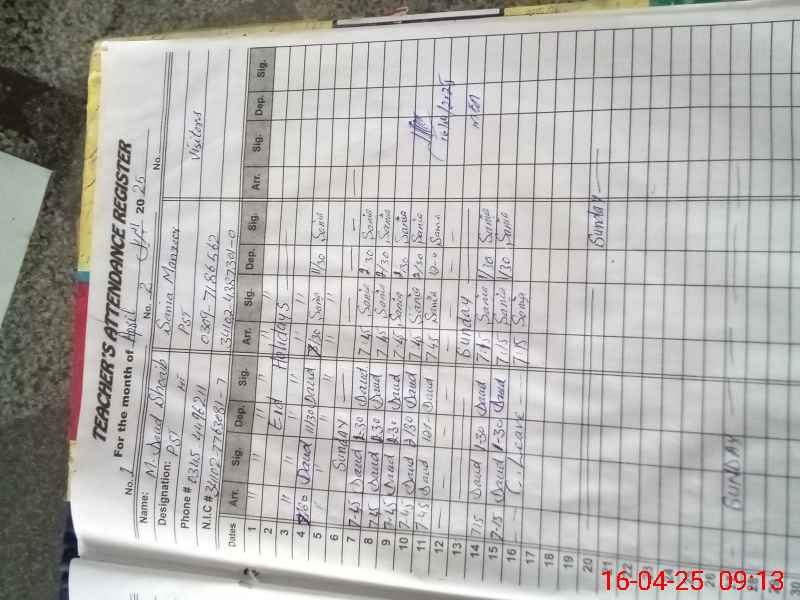 TEACHER'S ATTENDANCE REGISTER
For the month of April 2025
No. 1 No. 2 No.
Name: M. Daud Shoaib Sania Manzoor
Designation: PST PST Visitors
Phone # 0345 4496211 0309-7186662
N.I.C # 34102-7763081-7 34102 4387301-0
Dates Arr. Sig. Dep. Sig. Arr. Sig. Dep. Sig. Arr. Sig. Dep. Sig.
1 " " " " " "
2 Eid Holidays
3 " " " " " "
4 Daud 11/30 Daud Sania 11/30 Sania
5
6 Sunday
7 7-45 Daud 1-30 Daud 7-45 Sania 1/30 Sania
8 7-45 Daud 1-30 Daud 7-45 Sania 1/30 Sania
9 7-45 Daud 1-30 Daud 7-45 Sania 1/30 Sania
10 7-45 Daud 1/30 Daud 7-45 Sania 1/30 Sania
11 7-45 Daud Daud 7-45 Sania Sania
12
13 Sunday
14 7:15 Daud 1-30 Daud 7:15 Sania 1/30 Sania
15 7-15 Daud 1-30 Daud 7:15 Sania 1/30 Sania
16 Leave 7:15 Sania
17
18
19
20 Sunday
21
22
26
27 SUNDAY
30
16/04/2025
16-04-25 09:13